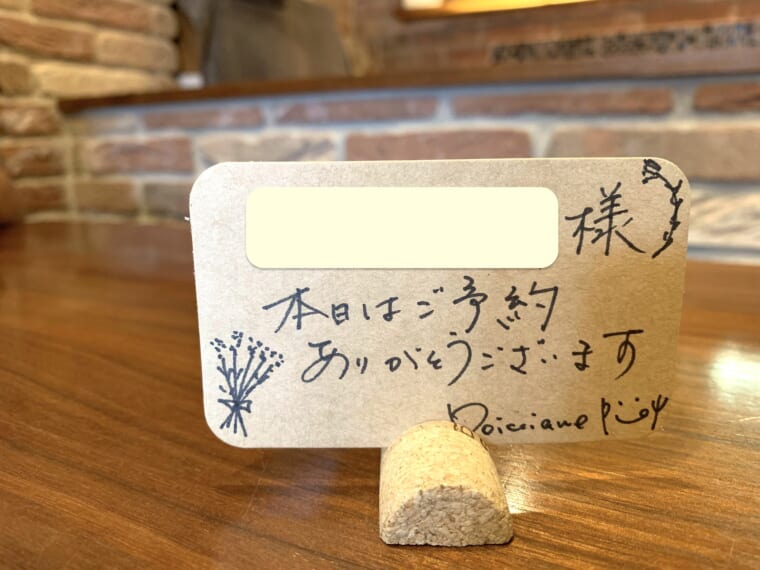 様
本日はご予約
ありがとうございます